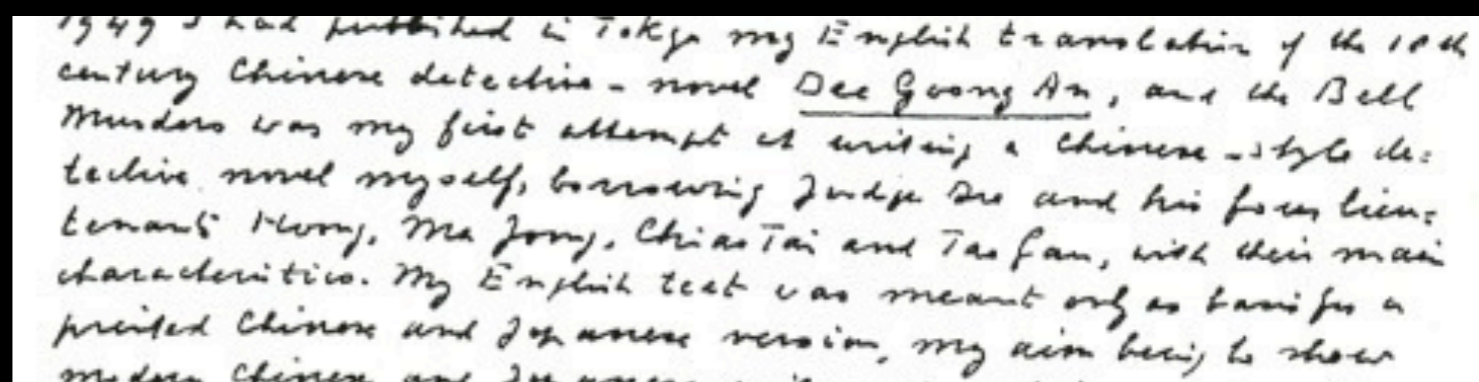 1949 I had published in Tokyo my English translation of the 18th
century Chinese detective - novel Dee Goong An, and the Bell
Murders was my first attempt at writing a Chinese - style de:
tective novel myself, borrowing Judge Dee and his four lieu:
tenants Hoong, Ma Joong, Chiao Tai and Tao Gan, with their main
characteristics. My English text was meant only as basis for a
printed Chinese and Japanese version, my aim being to show
modern Chinese and Japanese